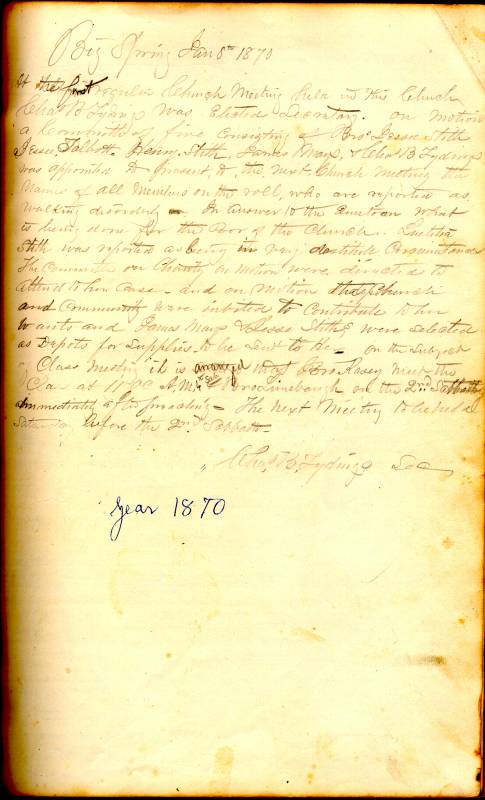 Big Spring Jan 8th 1870
At the first regular Church Meeting held in this Church
Chas B Lydings was Elected Secretary. on Motion
a Committee of five Consisting of Bros Jesse Stith
Jesse Talbott. Henry Stith, James Mays, & Chas B Lydings
was appointed to present, to the next Church Meeting the
Names of all Members on the roll, who are reported as
walking disorderly — In answer to the Question what
is being done for the Poor of the Church.
Stith, was reported as being in very destitute Circumstances
The Committee on Charity on Motion were directed to
attend to her Case — and on Motion the Church
and Community were invited to Contribute to her
wants and James Mays & Jesse Stith were selected
as Depots for Supplies to be sent to — on the Subject
of Class Meeting it is arranged that Bro Rasey meet the
Class at 11.00 A.M. & Bro Linebaugh on the 2nd Sabbath
immediately after preaching — The next Meeting to be held on
Saturday before the 2nd Sabbath
Chas B. Lydings Sec
year 1870